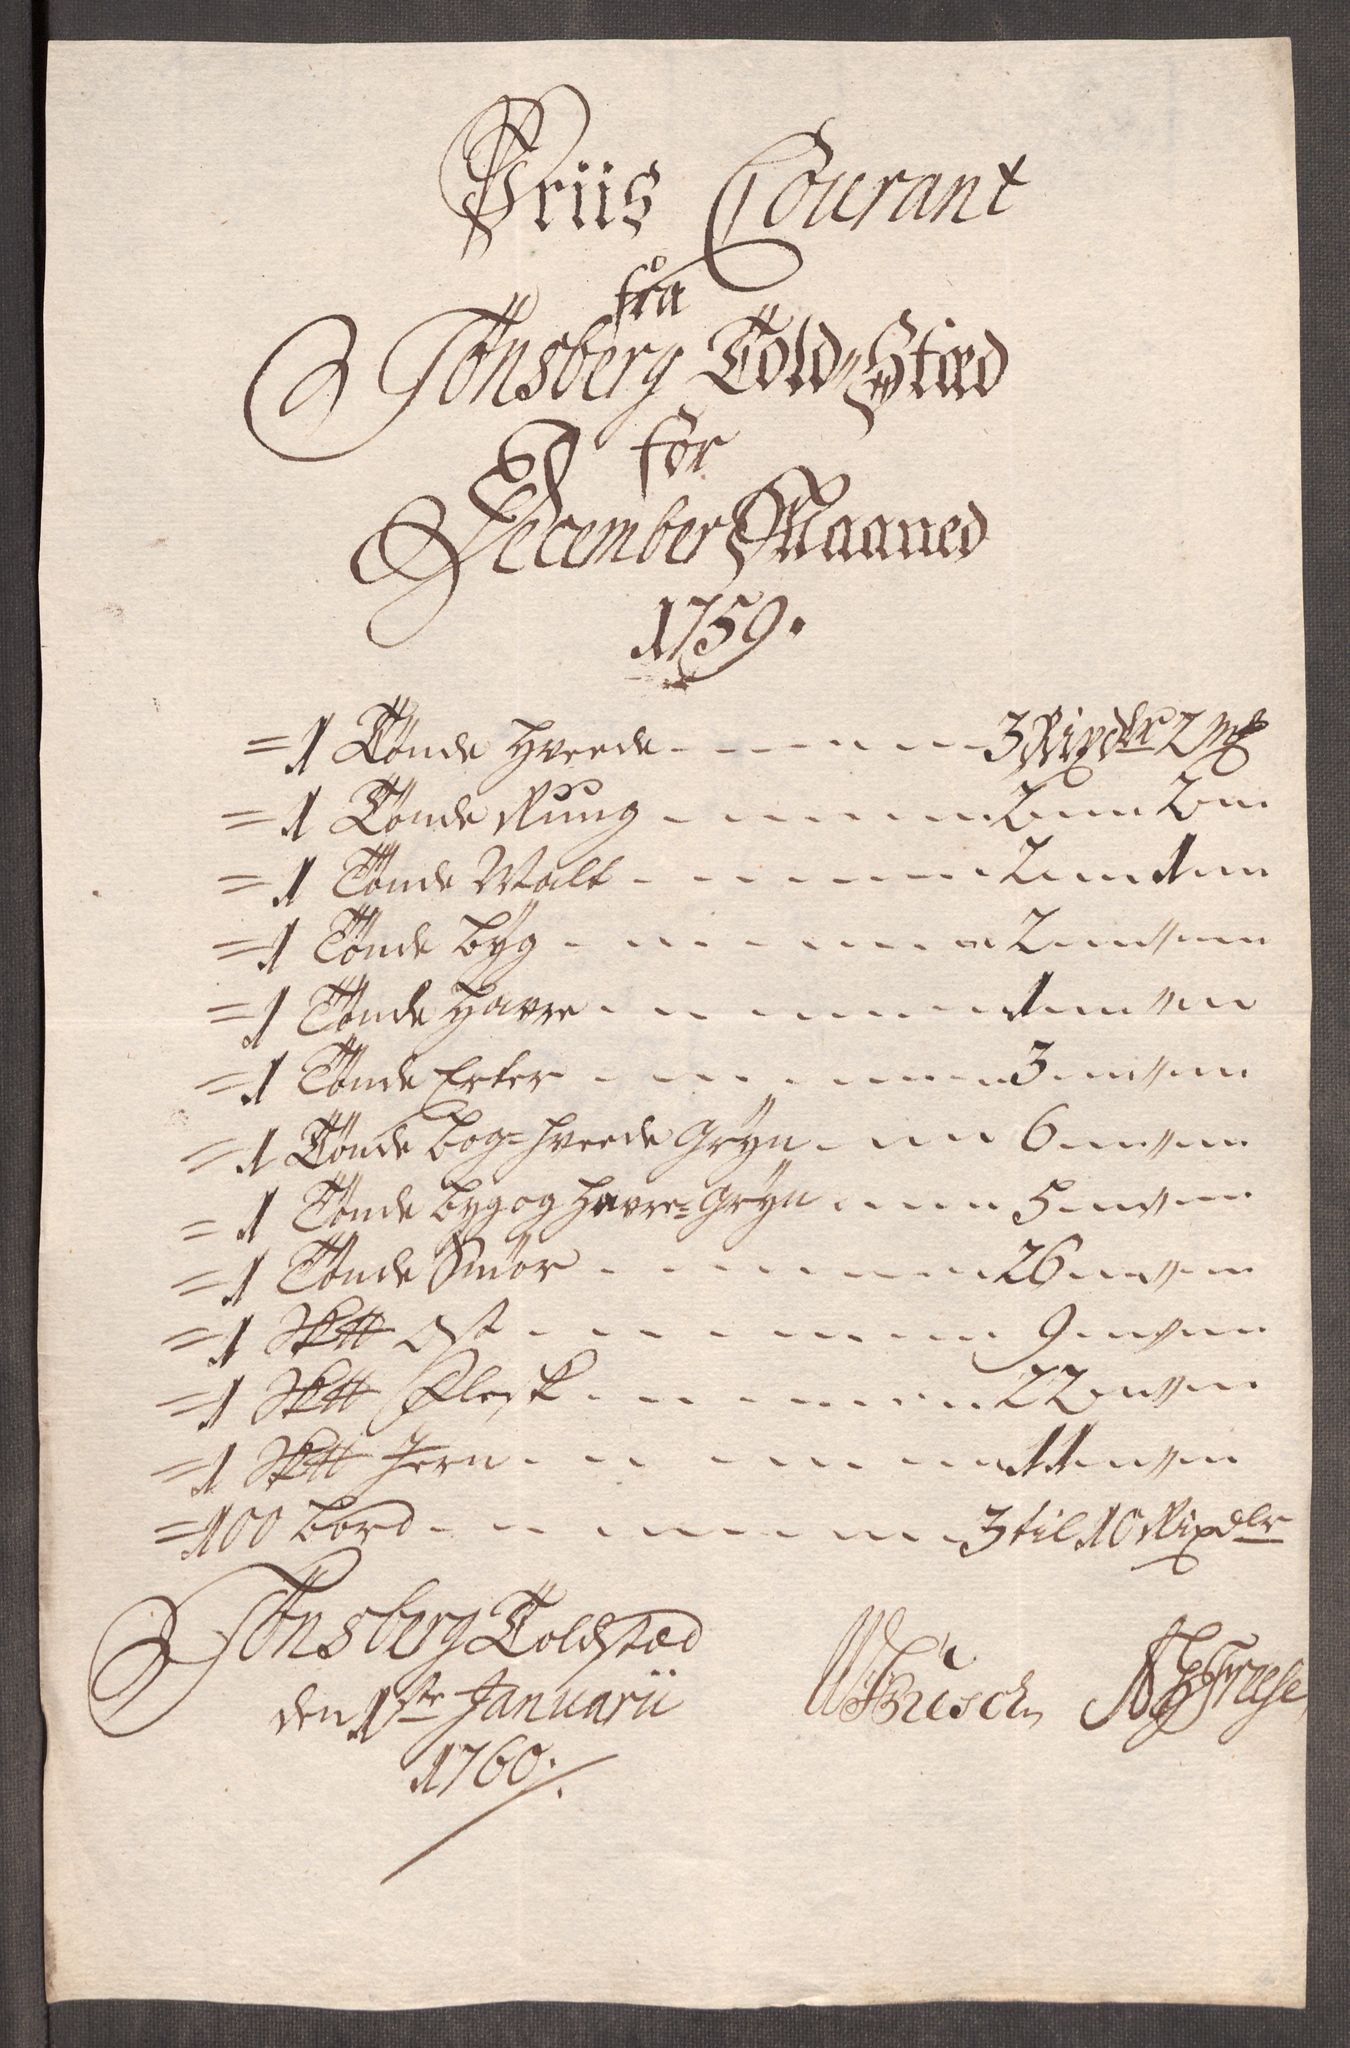 Priis Courant
fra
Tönsberg Told-Stæd
for
December Maaned
1759.
= 1 Tönde Hveede - - - - 3 Rixdlr 2 mk
= 1 Tönde Rŭug - - - - 2 - - 2 - -
= 1 Tönde Malt - - - - 2 - - 1 - -
= 1 Tönde Byg - - - - 2 - - " - -
= 1 Tönde Havre - - - - 1 - - " - -
= 1 Tönde Erter - - - - 3 - - " - -
= 1 Tönde Bog=Hveede Gryn - - - 6 - - " - -
= 1 Tönde Byg og Havre=Gryn - - - 5 - - " - -
= 1 Tönde Smör - - - - 26 - - " - -
= 1 Sk℔ Ost - - - - 9 - - " - -
= 1 Sk℔ Flesk - - - - 22 - - " - -
= 1 Sk℔ Jern - - - - 11 - - " - -
= 100 Bord - - - - 3 til 10 Rixdlr
Tönsberg Toldstæd
den 1ste Januarii
1760.
Büsch Friese